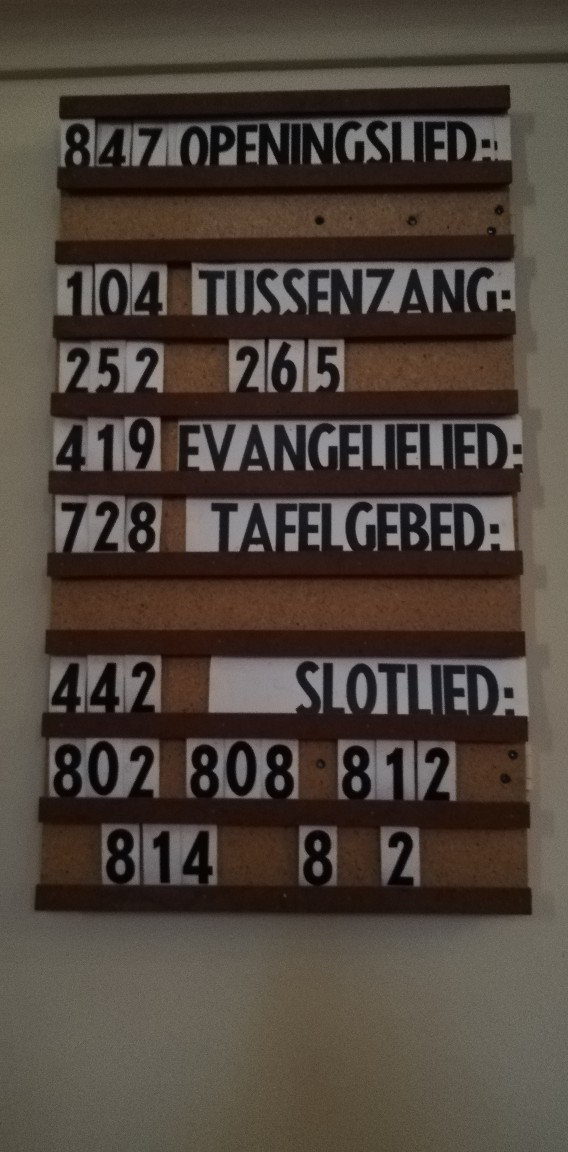 847 OPENINGSLIED:
104 TUSSENZANG:
252 265
419 EVANGELIELIED:
728 TAFELGEBED:
442 SLOTLIED:
802 808 812
814 8 2